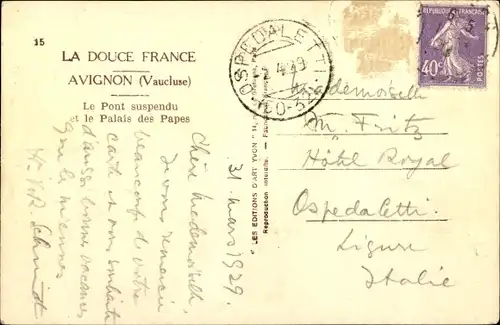 15
LA DOUCE FRANCE
AVIGNON (Vaucluse)
Le Pont suspendu
et le Palais des Papes
31. mars 1929.
Chère Mademoiselle,
Je vous remercie
beaucoup de votre
carte et vous souhaite
d'aussi bonnes vacances
que le miennes
Schmidt
"LES EDITIONS D'ART YVON"
Reproduction interdite.
OSPEDALETTI
2.4.29
REPUBLIQUE FRANÇAISE
40c
POSTES
Mademoiselle
M. Fritz
Hôtel Royal
Ospedaletti.
Ligure
Italie